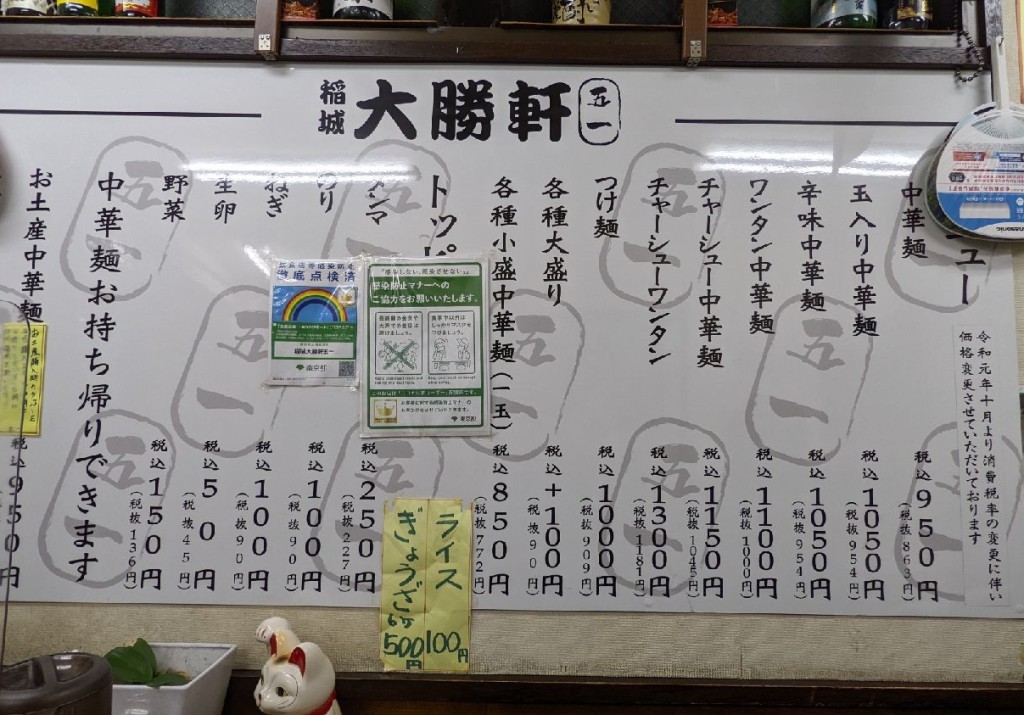 稲城
大勝軒
五一
ュー
中華麺 税込950円
(税抜863円)
玉入り中華麺 税込1050円
(税抜954円)
辛味中華麺 税込1050円
(税抜954円)
ワンタン中華麺 税込1100円
(税抜1000円)
チャーシュー中華麺 税込1150円
(税抜1045円)
チャーシューワンタン 税込1300円
(税抜1181円)
つけ麺 税込1000円
(税抜909円)
各種大盛り 税込+100円
(税抜90円)
各種小盛中華麺(一玉) 税込850円
(税抜772円)
トッピ
メンマ 税込250円
(税抜227円)
のり 税込100円
(税抜90円)
ねぎ 税込100円
(税抜90円)
生卵 税込50円
(税抜45円)
野菜 税込150円
(税抜136円)
中華麺お持ち帰りできます
お土産中華麺 税込950円
令和元年十月より消費税率の変更に伴い
価格変更させていただいております
ライス 100円
ぎょうざ 6ヶ 500円
徹底点検済
稲城大勝軒五一
東京都
感染防止マナーへの
ご協力をお願いいたします。
東京都
五一
五一
五一
五一
五一
五一
五一
五一
Panasonic